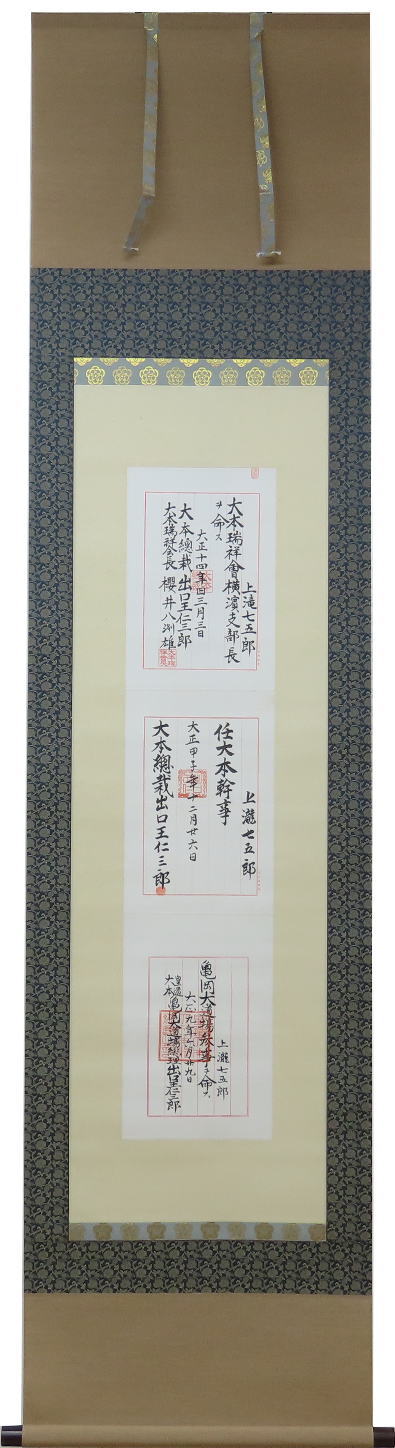 上滝七五郎
大本瑞祥會横濱支部長
ヲ命ス
大正十四年酉三月三日
大本總裁 出口王仁三郎
大本瑞祥会長 櫻井八洲雄
上瀧七五郎
任大本幹事
大正甲子年十二月廿六日
大本總裁出口王仁三郎
上瀧七五郎
亀岡大道場参事ヲ命ス
大正九年六月廿九日
皇道
大本亀岡大道場総理出口王仁三郎